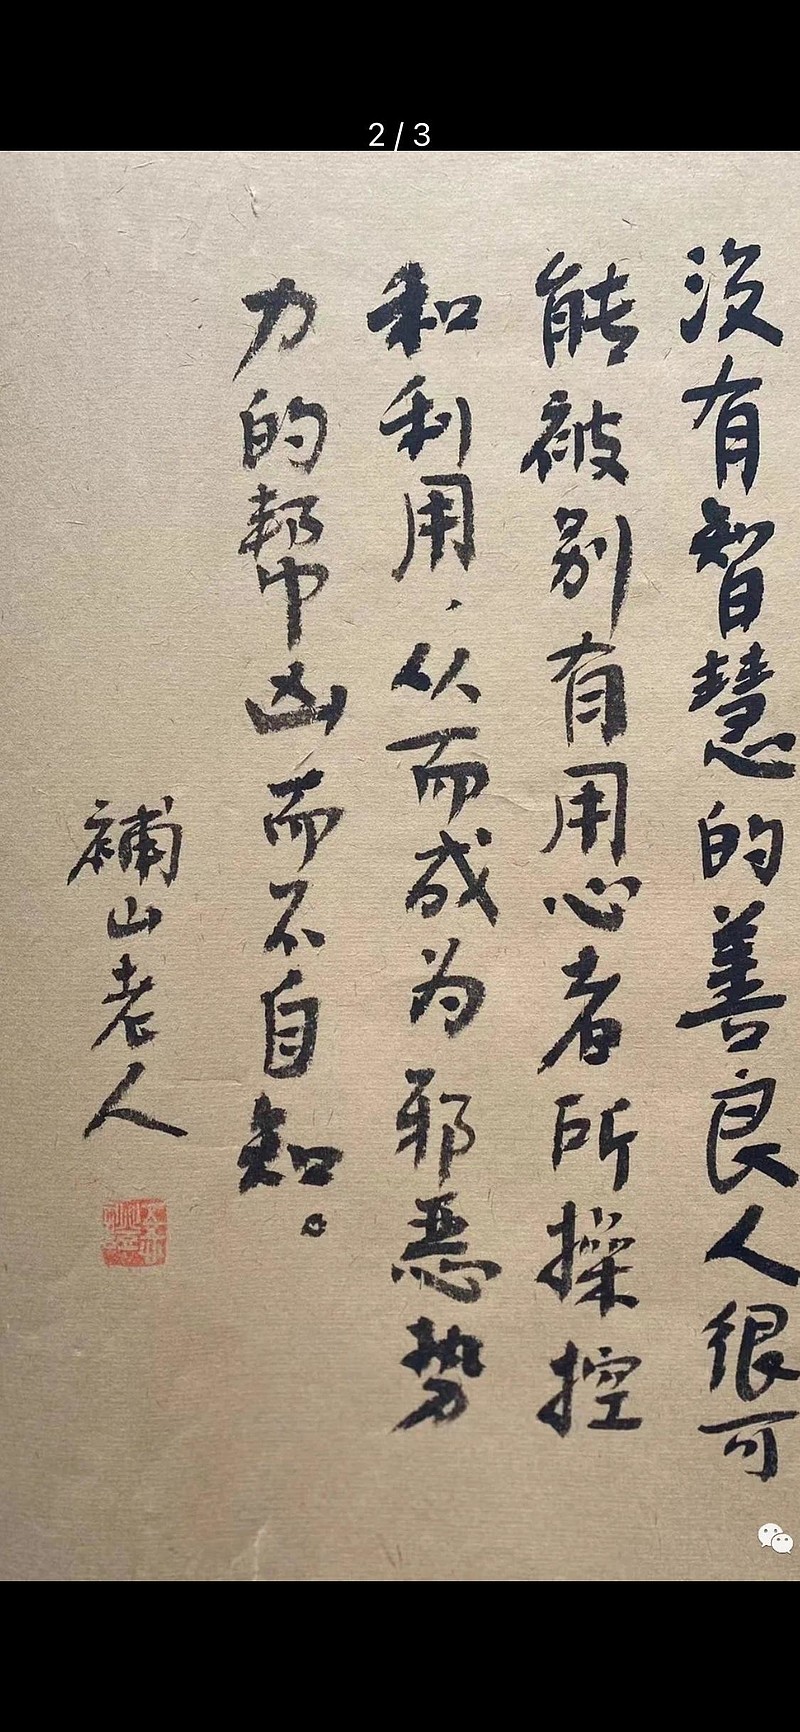 2 / 3
没有智慧的善良人很可
能被别有用心者所操控
和利用，从而成为邪恶势
力的帮凶而不自知。
補山老人